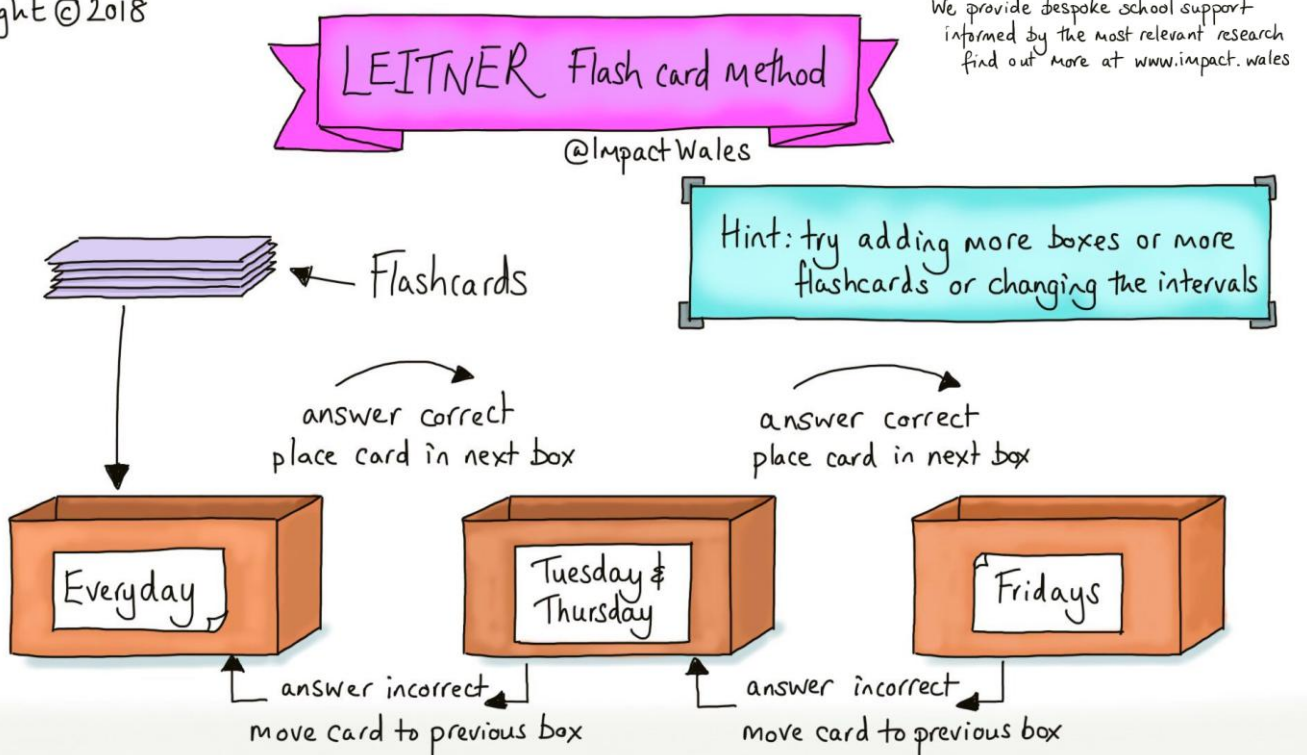 ©2018
We provide bespoke school support
informed by the most relevant research
find out more at www.impact.wales
LEITNER Flash card method
@ImpactWales
Hint: try adding more boxes or more
flashcards or changing the intervals
Flashcards
answer correct
place card in next box
answer correct
place card in next box
Everyday
Tuesday &
Thursday
Fridays
answer incorrect
move card to previous box
answer incorrect
move card to previous box